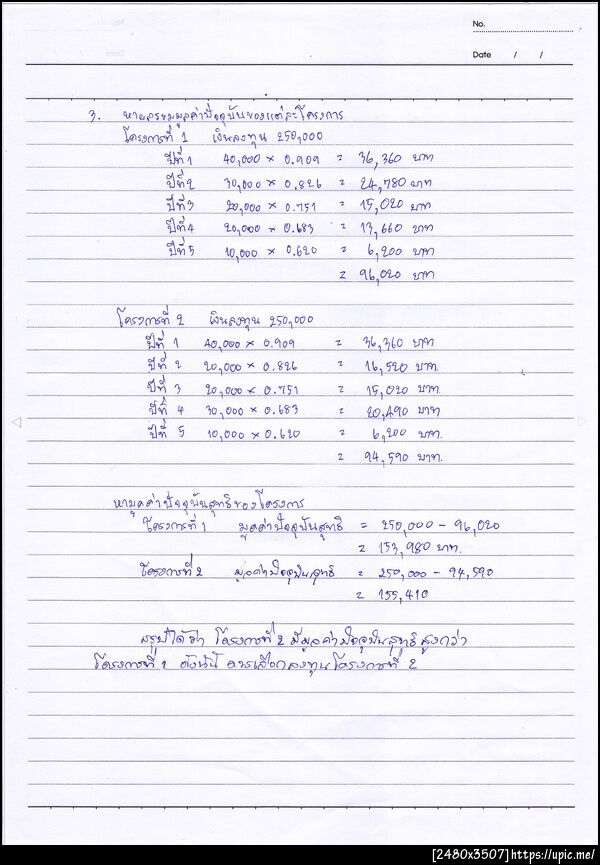 No.
Date / /
3. หาผลรวมมูลค่าปัจจุบันของแต่ละโครงการ
โครงการที่ 1 เงินลงทุน 250,000
ปีที่ 1 40,000 × 0.909 = 36,360 บาท
ปีที่ 2 30,000 × 0.826 = 24,780 บาท
ปีที่ 3 20,000 × 0.751 = 15,020 บาท
ปีที่ 4 20,000 × 0.683 = 13,660 บาท
ปีที่ 5 10,000 × 0.620 = 6,200 บาท
= 96,020 บาท
โครงการที่ 2 เงินลงทุน 250,000
ปีที่ 1 40,000 × 0.909 = 36,360 บาท
ปีที่ 2 20,000 × 0.826 = 16,520 บาท.
ปีที่ 3 20,000 × 0.751 = 15,020 บาท.
ปีที่ 4 30,000 × 0.683 = 20,490 บาท.
ปีที่ 5 10,000 × 0.620 = 6,200 บาท.
= 94,590 บาท.
หามูลค่าปัจจุบันสุทธิของโครงการ
โครงการที่ 1 มูลค่าปัจจุบันสุทธิ = 250,000 - 96,020
= 153,980 บาท.
โครงการที่ 2 มูลค่าปัจจุบันสุทธิ = 250,000 - 94,590
= 155,410
สรุปได้ว่า โครงการที่ 2 มีมูลค่าปัจจุบันสุทธิสูงกว่า
โครงการที่ 1 ดังนั้น ควรเลือกลงทุนโครงการที่ 2
[2480x3507]https://upic.me/